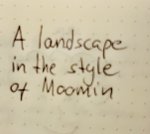 A landscape
in the style
of Moomin